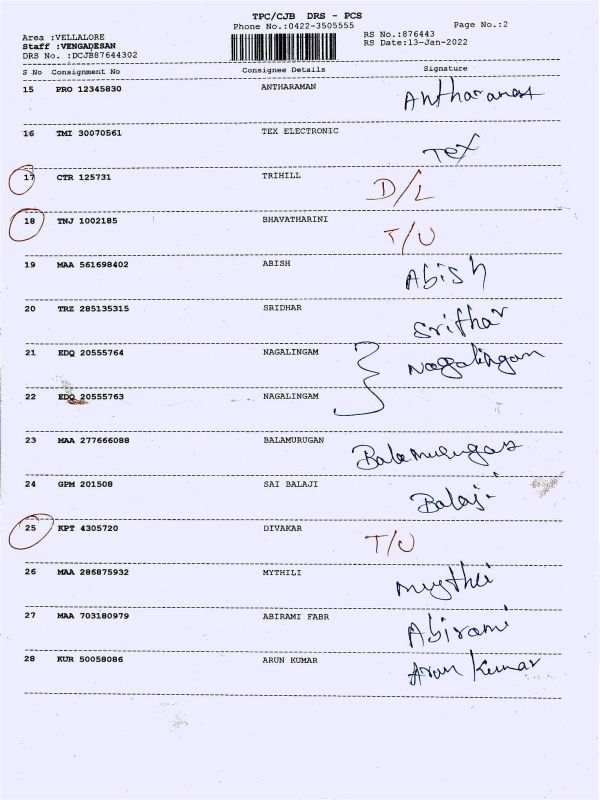 TPC/CJB DRS - PCS
Phone No.:0422-3505555
Page No.:2
Area :VELLALORE
RS No.:876443
Staff :VENGADESAN
RS Date:13-Jan-2022
DRS No. :DCJB87644302
S No Consignment No Consignee Details Signature
15 PRO 12345830 ANTHARAMAN Antharaman
16 TMI 30070561 TEX ELECTRONIC Tex
17 CTR 125731 TRIHILL D/L
18 TNJ 1002185 BHAVATHARINI T/U
19 MAA 561698402 ABISH Abish
20 TRZ 285135315 SRIDHAR Srithar
21 EDQ 20555764 NAGALINGAM Nagalingam
22 EDQ 20555763 NAGALINGAM
23 MAA 277666088 BALAMURUGAN Balamurugan
24 GPM 201508 SAI BALAJI Balaji
25 KPT 4305720 DIVAKAR T/U
26 MAA 286875932 MYTHILI Mythili
27 MAA 703180979 ABIRAMI FABR Abirami
28 KUR 50058086 ARUN KUMAR Arun Kumar